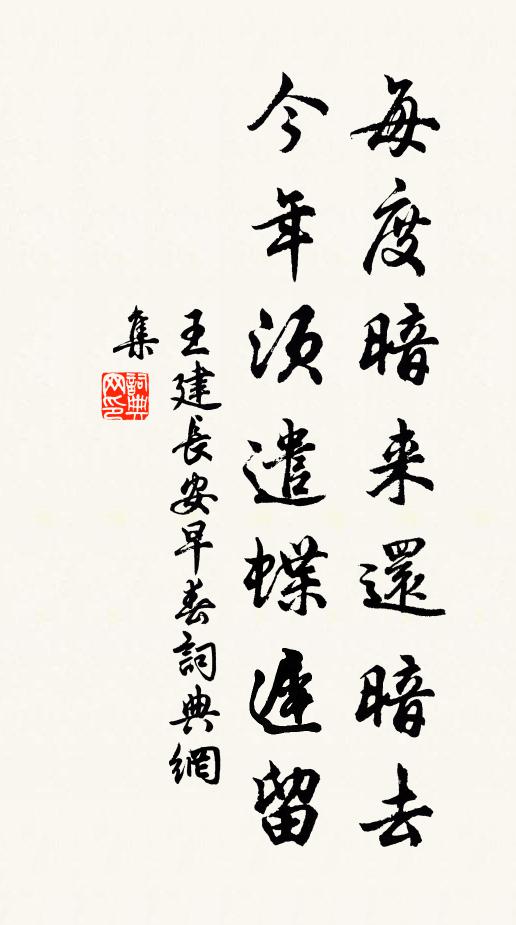 每度暗来還暗去
今年須遣蝶遲留
王建長安早春詞典網
集
詞典
网印